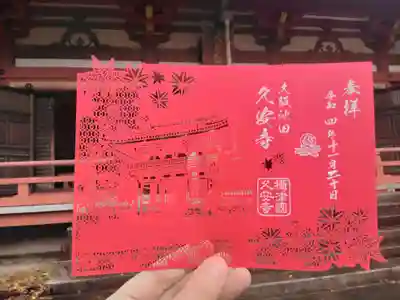 奉拝
令和四年十一月二十日
大阪池田
久安寺
摂津國
久安寺